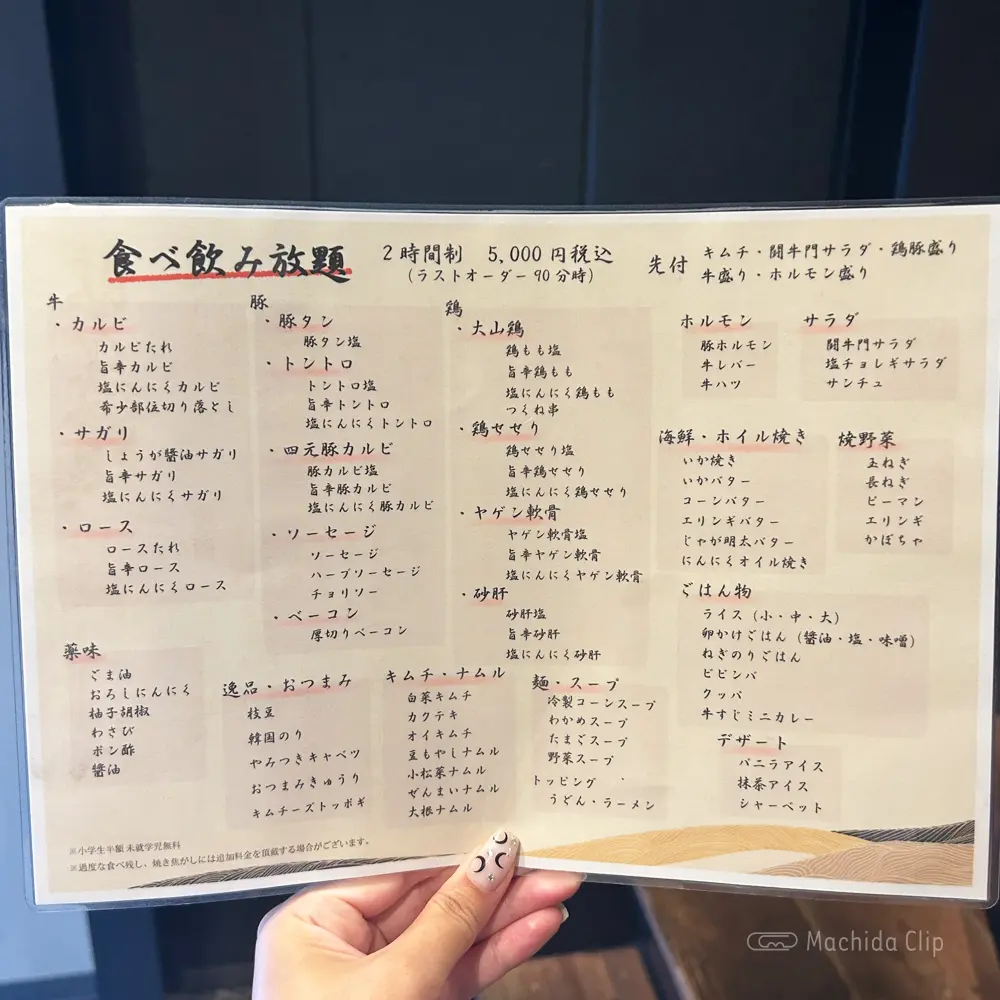 食べ飲み放題
2時間制 5,000円税込
(ラストオーダー90分時)
先付
キムチ・闘牛門サラダ・鶏豚盛り
牛盛り・ホルモン盛り
牛
・カルビ
カルビたれ
旨辛カルビ
塩にんにくカルビ
希少部位切り落とし
・サガリ
しょうが醤油サガリ
旨辛サガリ
塩にんにくサガリ
・ロース
ロースたれ
旨辛ロース
塩にんにくロース
豚
・豚タン
豚タン塩
・トントロ
トントロ塩
旨辛トントロ
塩にんにくトントロ
・四元豚カルビ
豚カルビ塩
旨辛豚カルビ
塩にんにく豚カルビ
・ソーセージ
ソーセージ
ハーブソーセージ
チョリソー
・ベーコン
厚切りベーコン
鶏
・大山鶏
鶏もも塩
旨辛鶏もも
塩にんにく鶏もも
つくね串
・鶏せせり
鶏せせり塩
旨辛鶏せせり
塩にんにく鶏せせり
・ヤゲン軟骨
ヤゲン軟骨塩
旨辛ヤゲン軟骨
塩にんにくヤゲン軟骨
・砂肝
砂肝塩
旨辛砂肝
塩にんにく砂肝
ホルモン
豚ホルモン
牛レバー
牛ハツ
サラダ
闘牛門サラダ
塩チョレギサラダ
サンチュ
海鮮・ホイル焼き
いか焼き
いかバター
コーンバター
エリンギバター
じゃが明太バター
にんにくオイル焼き
焼野菜
玉ねぎ
長ねぎ
ピーマン
エリンギ
かぼちゃ
ごはん物
ライス(小・中・大)
卵かけごはん(醤油・塩・味噌)
ねぎのりごはん
ビビンバ
クッパ
牛すじミニカレー
薬味
ごま油
おろしにんにく
柚子胡椒
わさび
ポン酢
醤油
逸品・おつまみ
枝豆
韓国のり
やみつきキャベツ
おつまみきゅうり
キムチーズトッポギ
キムチ・ナムル
白菜キムチ
カクテキ
オイキムチ
豆もやしナムル
小松菜ナムル
ぜんまいナムル
大根ナムル
麺・スープ
冷製コーンスープ
わかめスープ
たまごスープ
野菜スープ
トッピング
うどん・ラーメン
デザート
バニラアイス
抹茶アイス
シャーベット
※小学生半額 未就学児無料
※過度な食べ残し、焼き焦がしには追加料金を頂戴する場合がございます。
Machida Clip